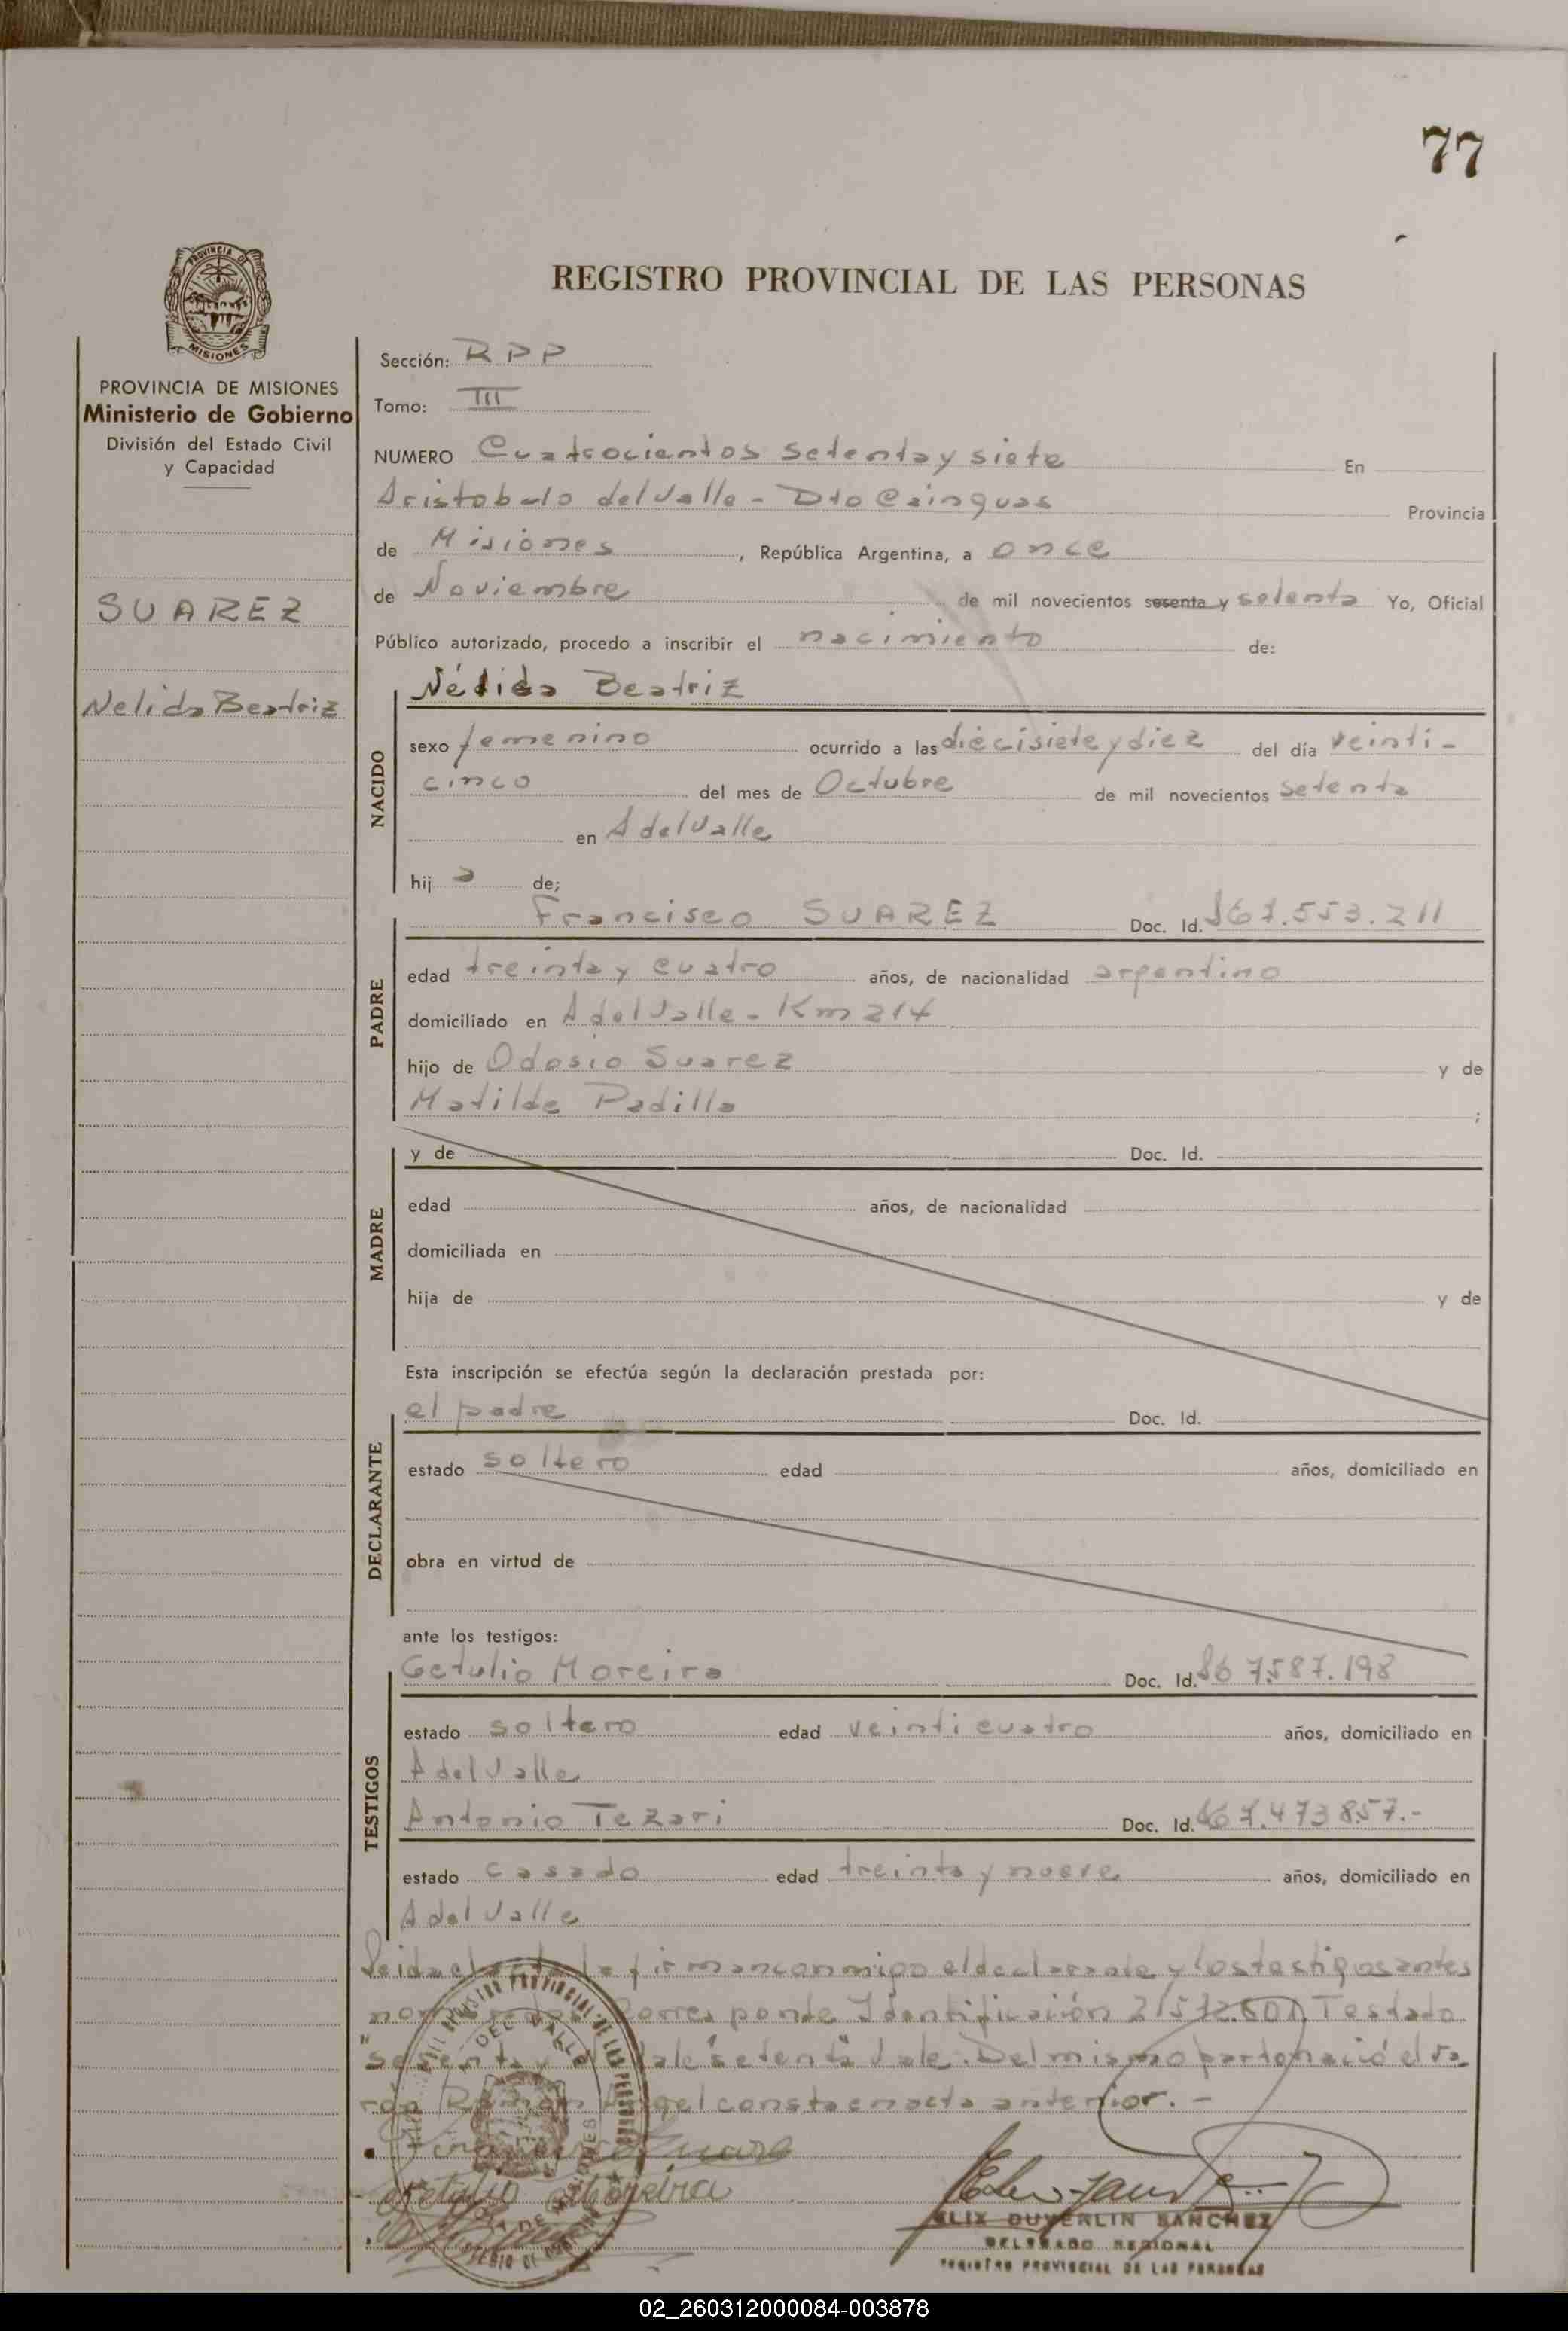 77
PROVINCIA DE
MISIONES
REGISTRO PROVINCIAL DE LAS PERSONAS
PROVINCIA DE MISIONES
Ministerio de Gobierno
División del Estado Civil
y Capacidad
SUAREZ
Nelida Beatriz
Sección: RPP
Tomo: III
NUMERO Cuatrocientos setenta y siete En
Aristobulo del Valle - Dto Cainguas Provincia
de Misiones, República Argentina, a once
de Noviembre de mil novecientos sesenta y setenta Yo, Oficial
Público autorizado, procedo a inscribir el nacimiento de:
NACIDO
Nélida Beatriz
sexo femenino ocurrido a las diecisiete y diez del día veinti-
cinco del mes de Octubre de mil novecientos setenta
en A del Valle
hij a de;
PADRE
Francisco SUAREZ Doc. Id. 7.553.211
edad treinta y cuatro años, de nacionalidad argentino
domiciliado en A del Valle - Km 214
hijo de Odosio Suarez y de
Matilde Padilla ;
MADRE
y de Doc. Id.
edad años, de nacionalidad
domiciliada en
hija de y de
Esta inscripción se efectúa según la declaración prestada por:
DECLARANTE
el padre Doc. Id.
estado soltero edad años, domiciliado en
obra en virtud de
ante los testigos:
TESTIGOS
Getulio Moreira Doc. Id. 7.587.198
estado soltero edad veinticuatro años, domiciliado en
A del Valle
Antonio Tezari Doc. Id. 7.473.857.-
estado casado edad treinta y nueve años, domiciliado en
A del Valle
Leida el firman conmigo el declarante y los testigos antes
Corresponde Identificación 21.572.501 Testado
vale "setenta" Vale. Del mismo parto nació el va-
rón Ramón Angel consta en acta anterior. -
Francisco Suarez
Getulio Moreira
ELIX DUVERLIN SANCHEZ
DELEGADO REGIONAL
REGISTRO PROVINCIAL DE LAS PERSONAS
02_260312000084-003878